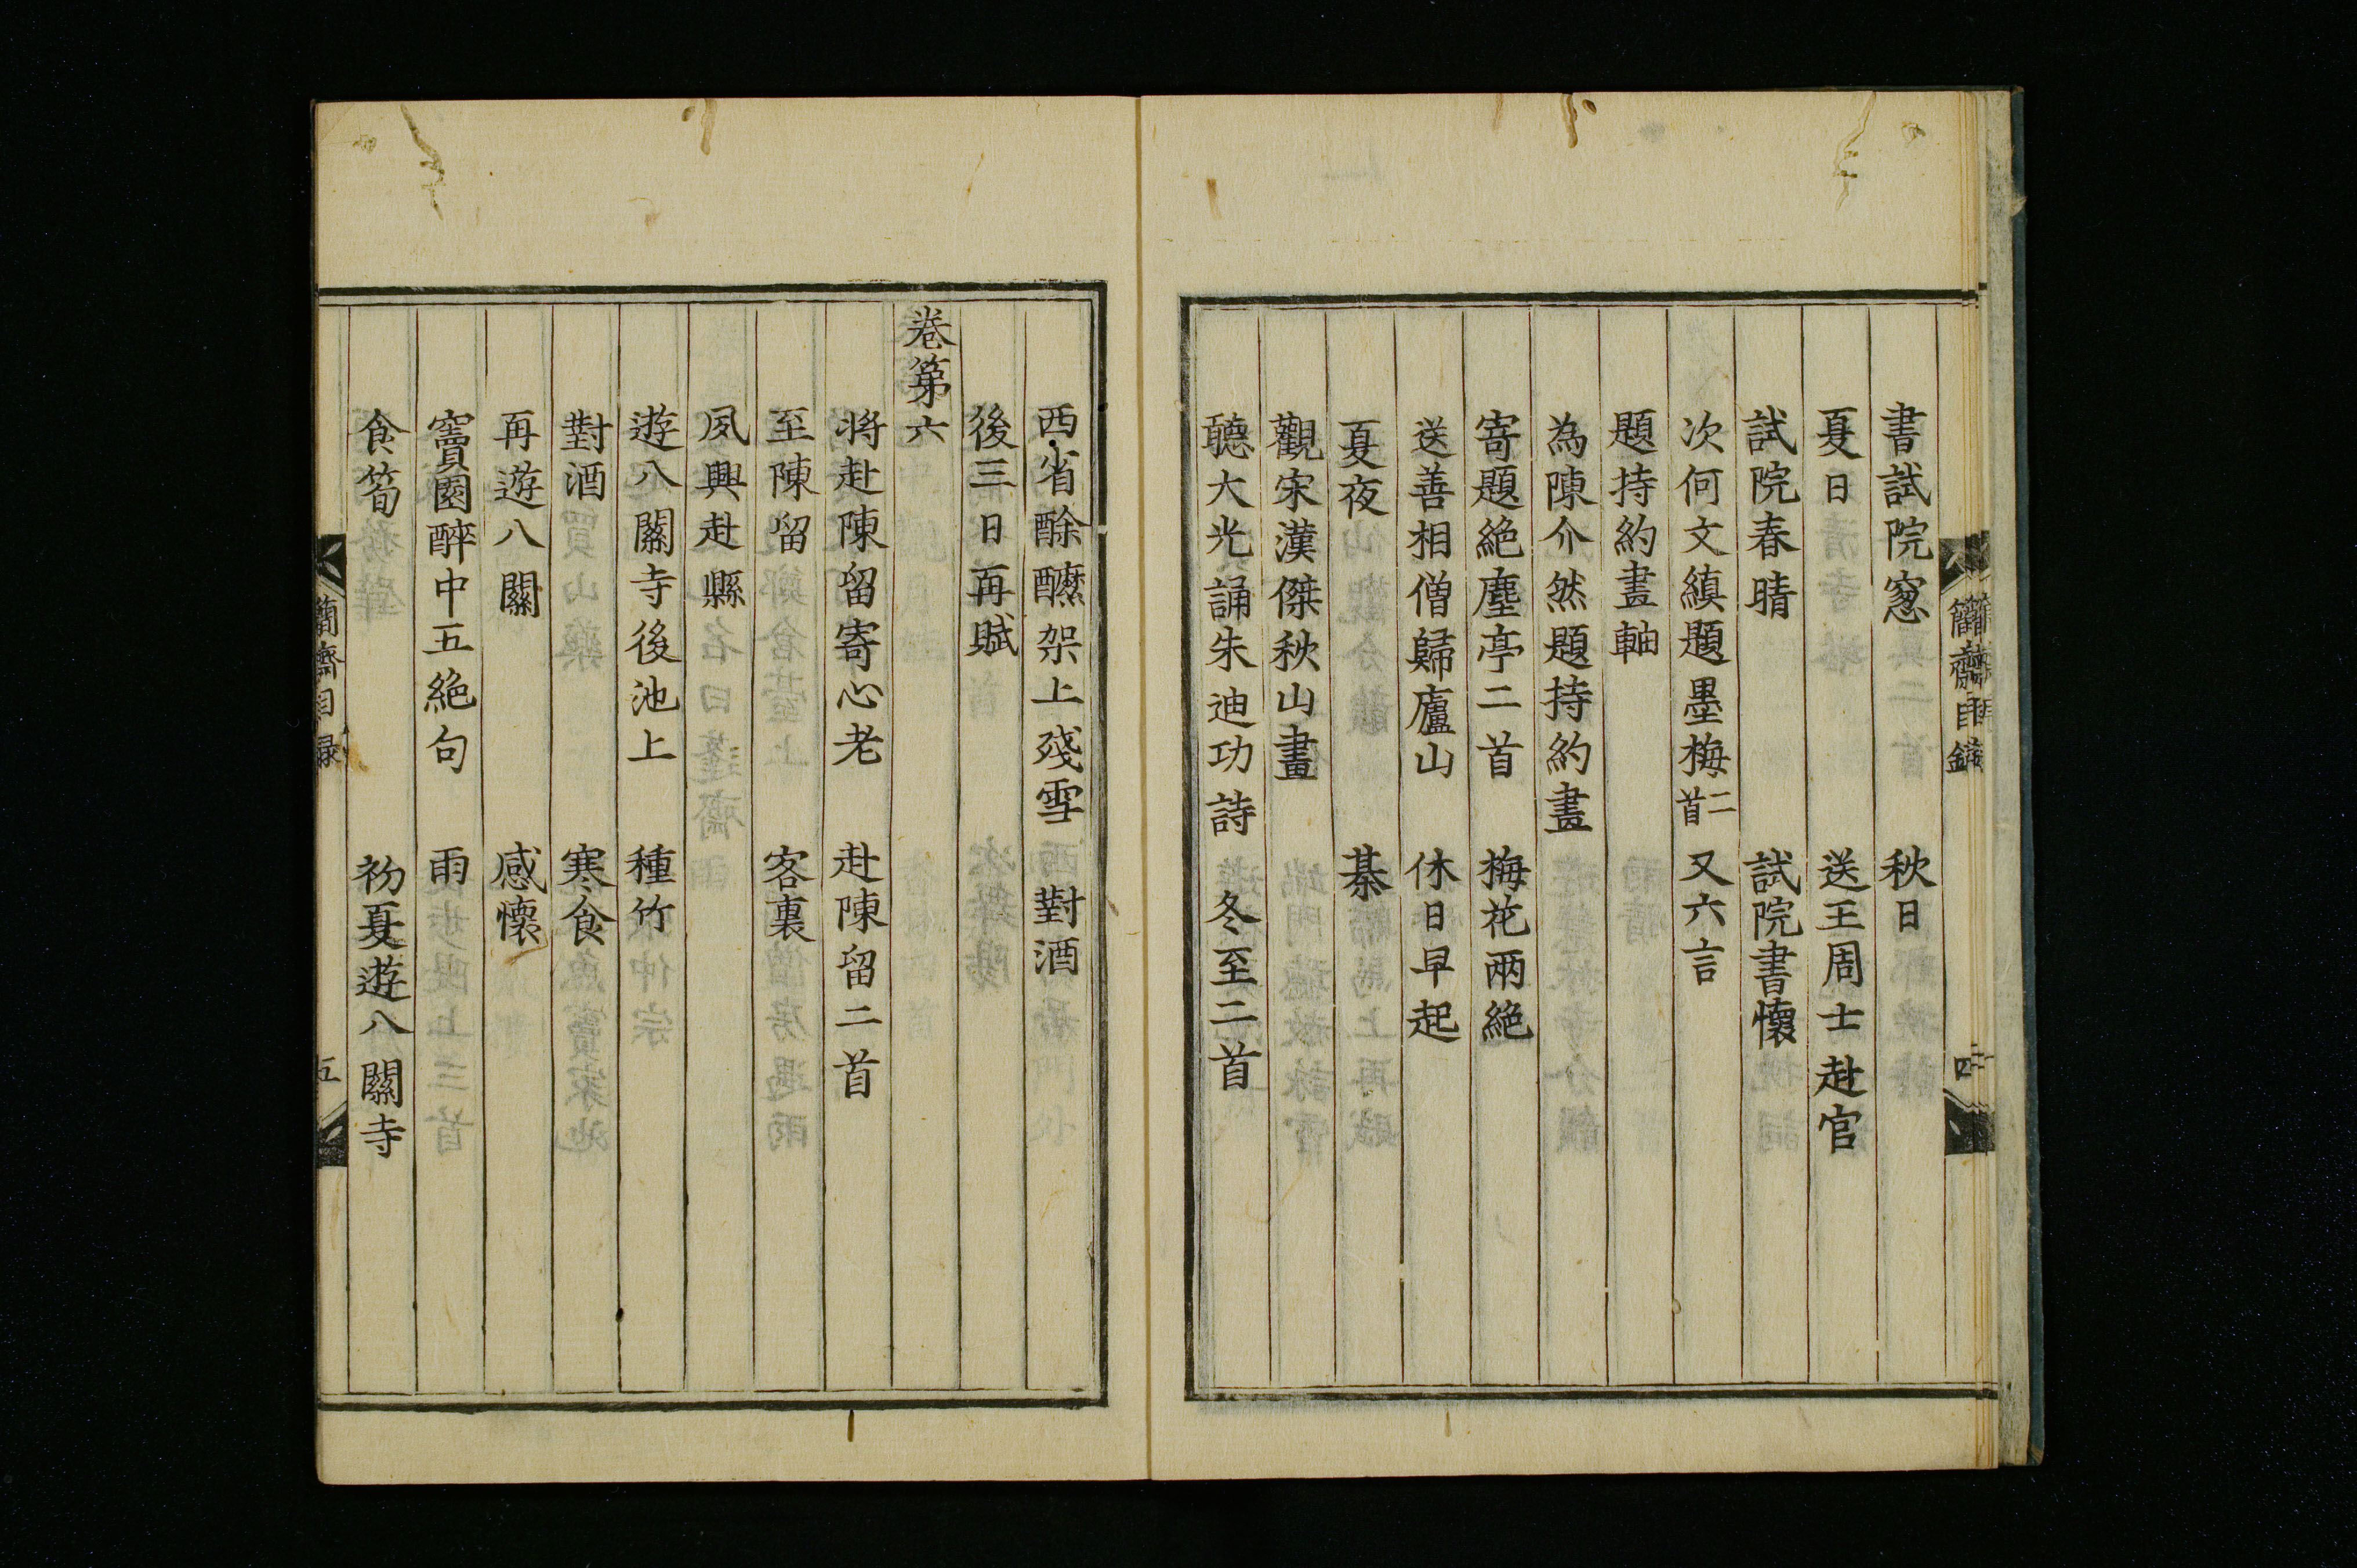 簡齋目錄 四
書試院窻 秋日
夏日 送王周士赴官
試院春晴 試院書懷
次何文縝題墨梅二首 又六言
題持約畫軸
為陳介然題持約畫
寄題絶塵亭二首 梅花兩絶
送善相僧歸廬山 休日早起
夏夜 棊
觀宋漢傑秋山畫
聽大光誦朱迪功詩 冬至二首
西省酴醾架上殘雪 對酒
後三日再賦
卷第六
將赴陳留寄心老 赴陳留二首
至陳留 客裏
夙興赴縣
遊八關寺後池上 種竹
對酒 寒食
再遊八關 感懷
竇園醉中五絶句 雨
食筍 初夏遊八關寺
簡齋目録 五